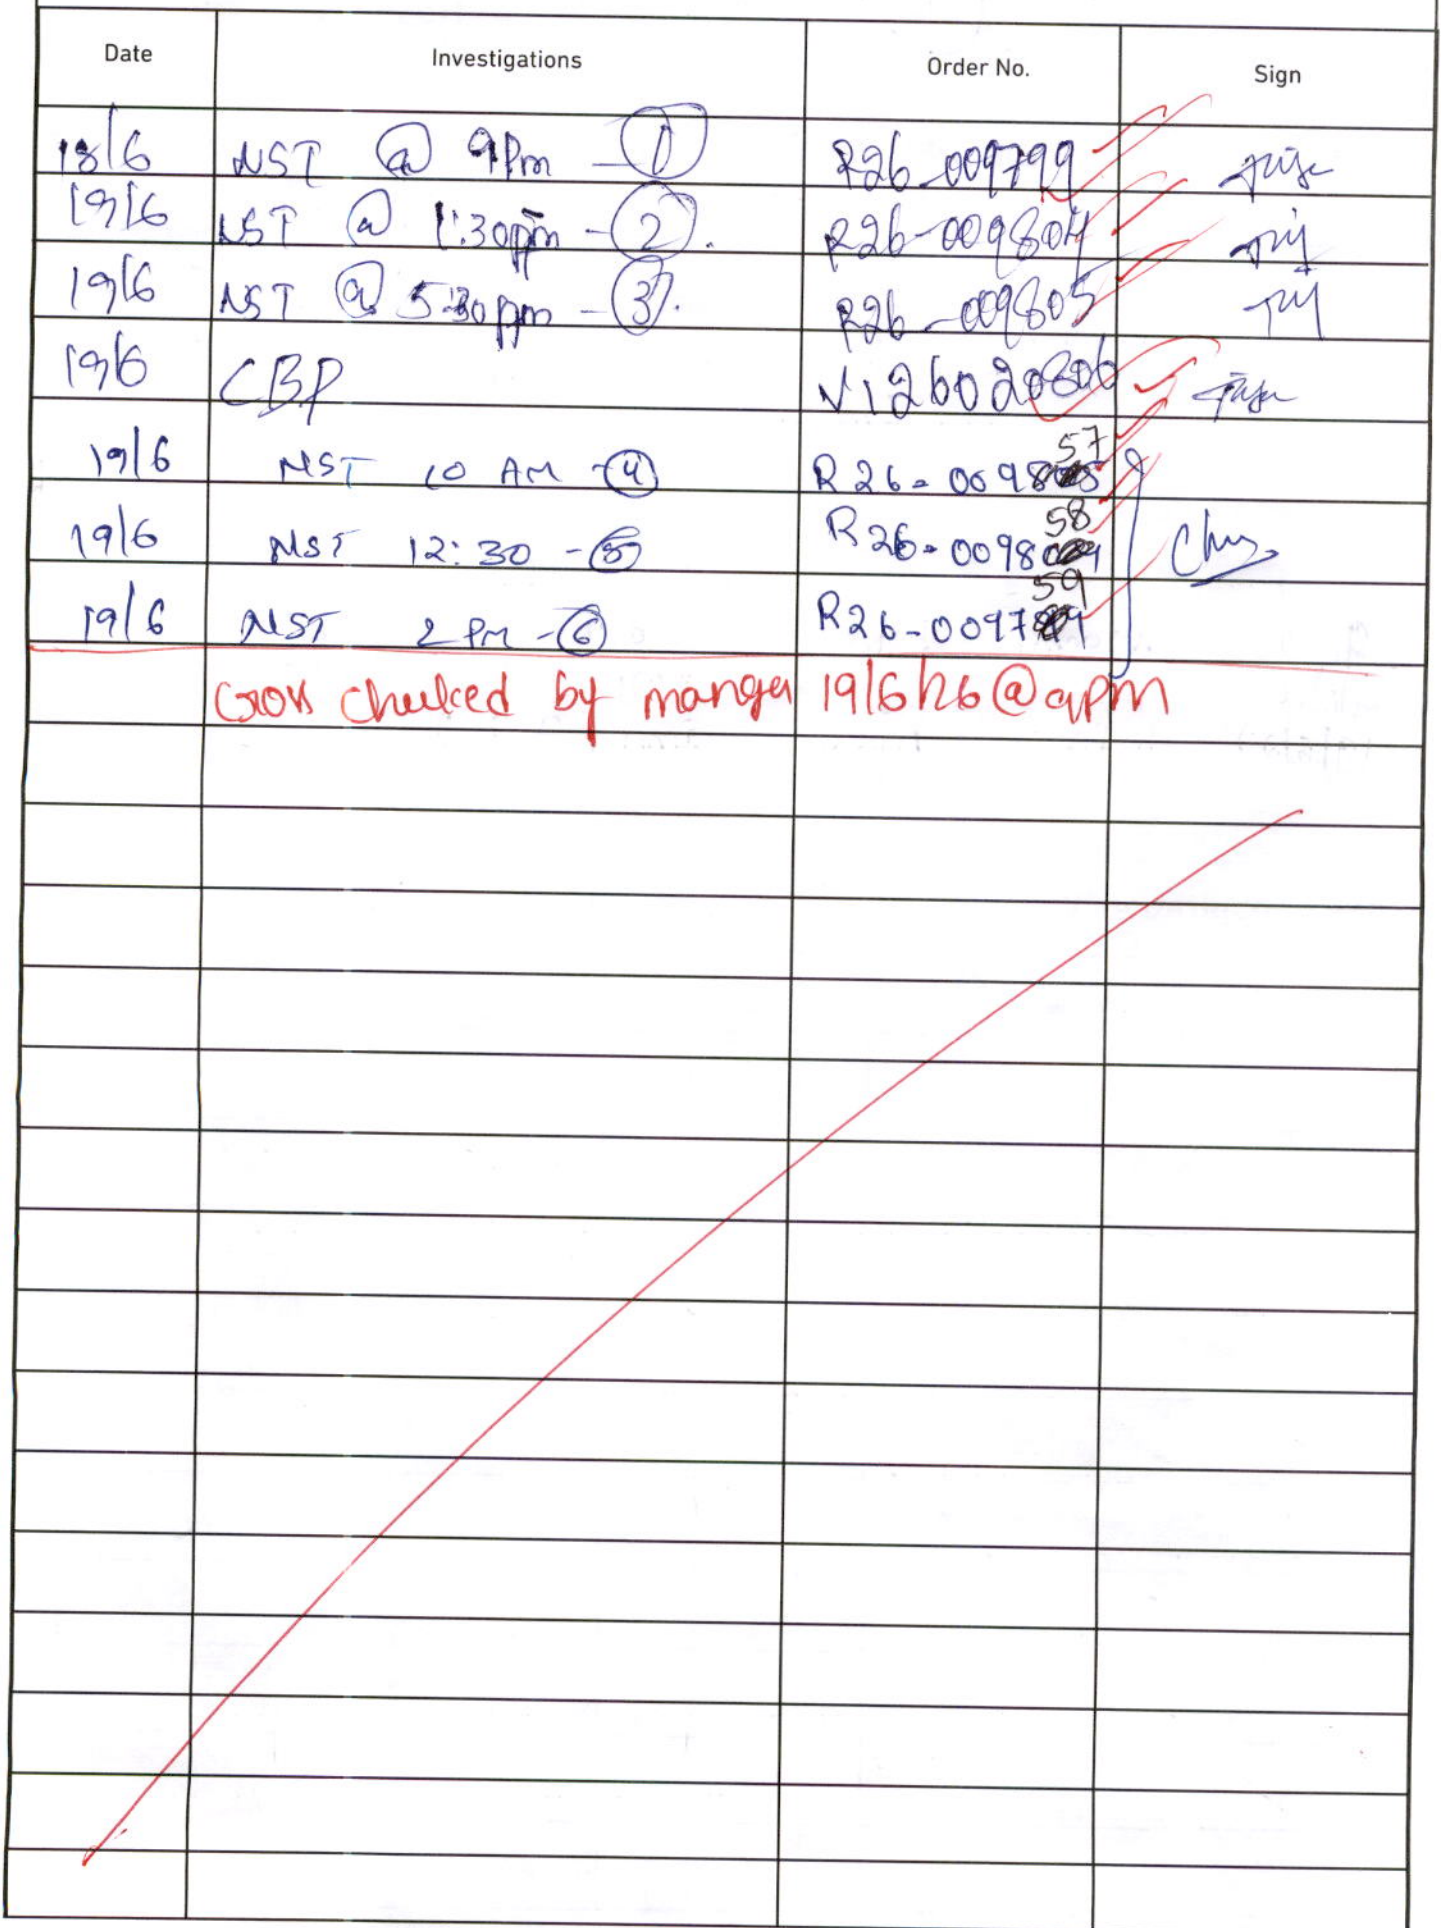 Date Investigations Order No. Sign
18/6 NST @ 9Pm - 1 R26-009799
19/6 NST @ 1:30pm - 2. R26-009804
19/6 NST @ 5:30pm - 3. R26-009805
19/6 CBP VI26020806
57
19/6 NST 10 AM - 4 R26-0098
58
19/6 NST 12:30 - 5 R26-0098
59
19/6 NST 2 PM - 6 R26-0097
Cross checked by manger 19/6/26 @ 9PM